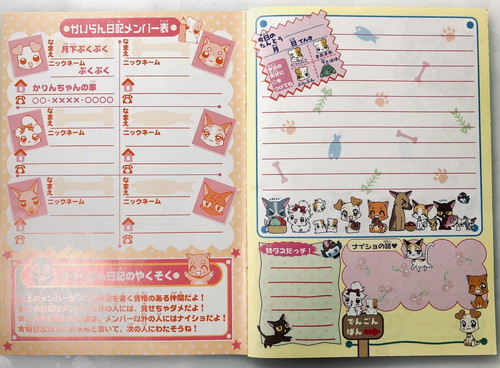 かいらん日記メンバー表
なまえ
月下ぷくぷく
ニックネーム
ぷくぷく
かりんちゃんの家
○○-××××-○○○○
なまえ
ニックネーム
なまえ
ニックネーム
なまえ
ニックネーム
なまえ
ニックネーム
なまえ
ニックネーム
日記のやくそく
メンバー
を書く資格のある仲間だよ!
の人には、見せちゃダメだよ!
は、メンバー以外の人にはナイショだよ!
ちゃんと書いて、次の人にわたそうね!
今日の
たんとう
月 日 てんき
特ダネだっチ!
ナイショの話♥
でんごん
ばん